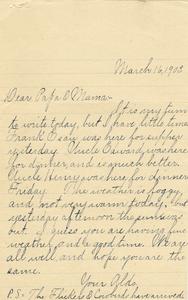 March 16, 1902
Dear Papa & Mama-
It is my turn
to write today, but I have little time
Frank was here for supper
yesterday. Uncle Edward was here
for dinner, and is much better.
Uncle Henry was here for dinner
Friday. The weather is foggy,
and not very warm today, but
yesterday afternoon the sun was
out. I guess you are having fine
weather, and a good time. We are
all well, and hope you are the
same.
Your
P.S. The & have arrived